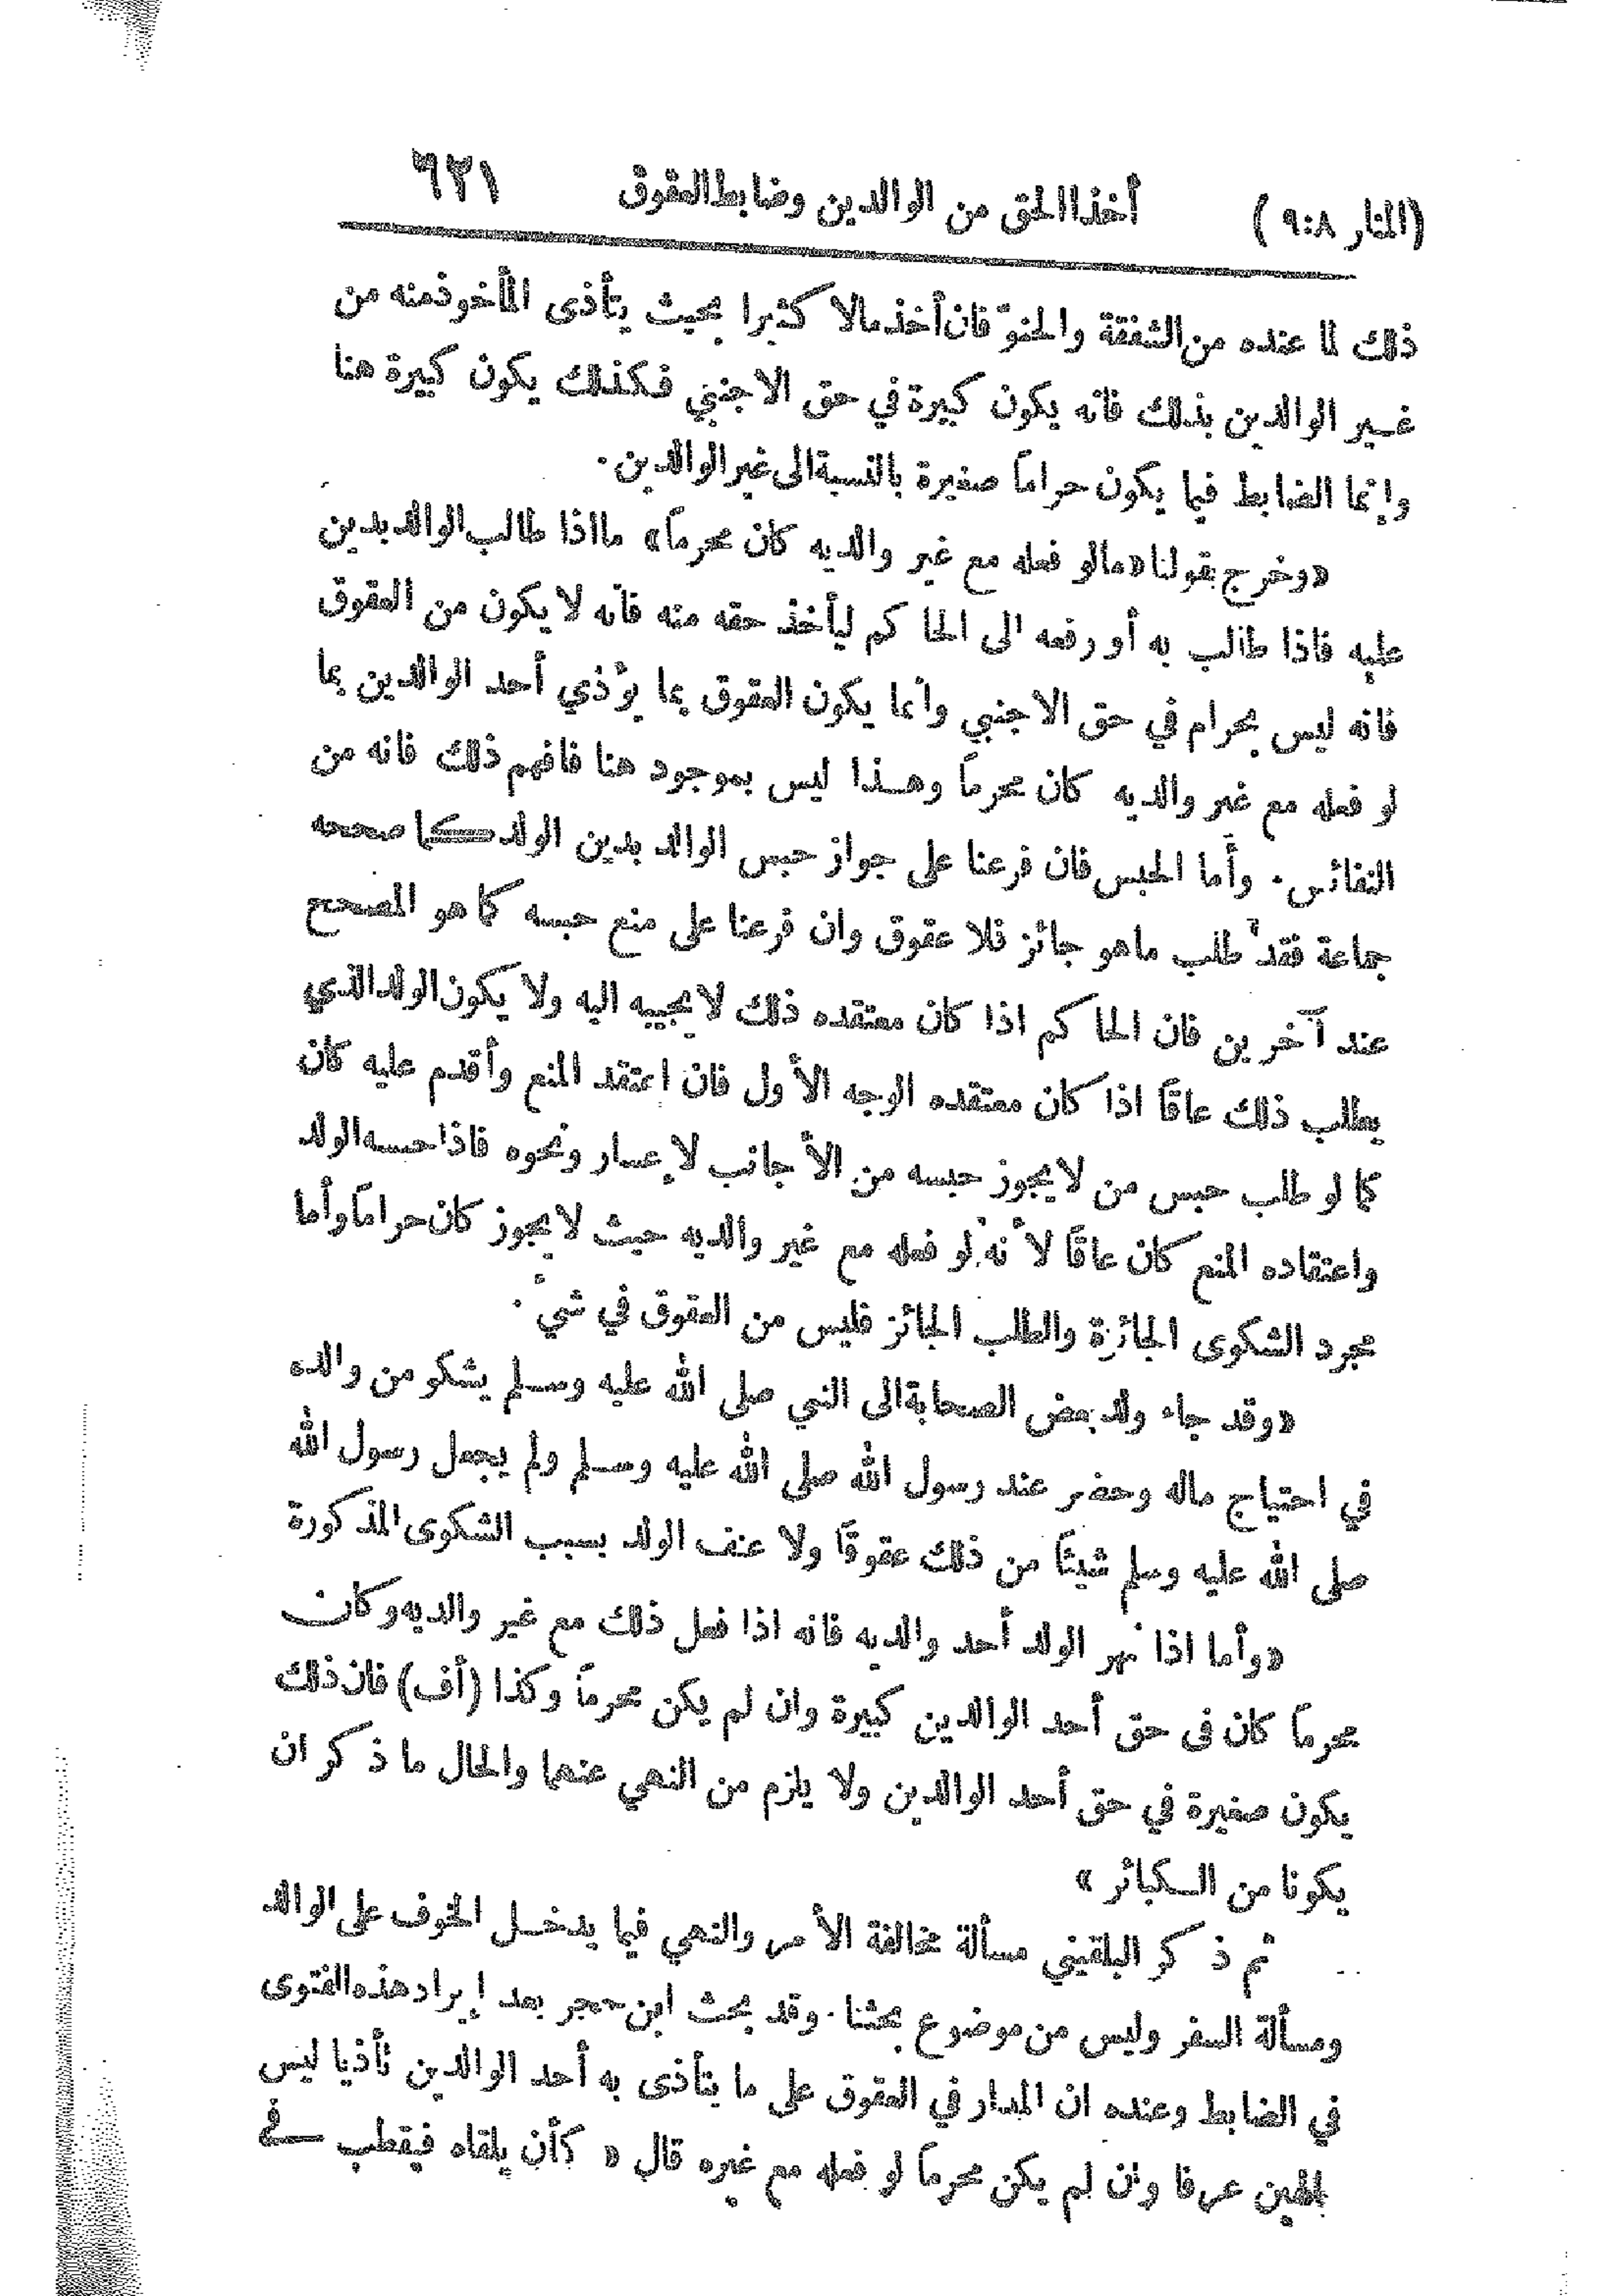 (المنار ٩:٨) أخذ الحق من الوالدين وضابط العقوق ٦٢١
ذلك لما عنده من الشفقة والحنوّ فان أخذ مالا كثيرا بحيث يتأذى المأخوذ منه من
غير الوالدين بذلك فانه يكون كبيرة في حق الاجنبي فكذلك يكون كبيرة هنا
وإنما الضابط فيما يكون حراماً صغيرة بالنسبة الى غير الوالدين .
«وخرج بقولنا «مالو فعله مع غير والديه كان محرماً» ما اذا طالب الوالد بدين
عليه فاذا طالب به أو رفعه الى الحاكم ليأخذ حقه منه فانه لا يكون من العقوق
فانه ليس بحرام في حق الاجنبي وانما يكون العقوق بما يؤذي أحد الوالدين بما
لو فعله مع غير والديه كان محرماً وهذا ليس بموجود هنا فافهم ذلك فانه من
النفائس . وأما الحبس فان فرعنا على جواز حبس الوالد بدين الولد كما صححه
جماعة فقد طلب ماهو جائز فلا عقوق وان فرعنا على منع حبسه كما هو المصحح
عند آخرين فان الحاكم اذا كان معتقده ذلك لا يجيبه اليه ولا يكون الولد الذي
يطلب ذلك عاقاً اذا كان معتقده الوجه الأول فان اعتقد المنع وأقدم عليه كان
كما لو طلب حبس من لا يجوز حبسه من الأجانب لإعسار ونحوه فاذا حبسه الولد
واعتقاده المنع كان عاقاً لأنه لو فعله مع غير والديه حيث لا يجوز كان حراماً وأما
مجرد الشكوى الجائزة والطلب الجائز فليس من العقوق في شيء .
«وقد جاء ولد بعض الصحابة الى النبي صلى الله عليه وسلم يشكو من والده
في احتياج ماله وحضر عند رسول الله صلى الله عليه وسلم ولم يجعل رسول الله
صلى الله عليه وسلم شيئاً من ذلك عقوقاً ولا عنف الولد بسبب الشكوى المذكورة
«وأما اذا نهر الولد أحد والديه فانه اذا فعل ذلك مع غير والديه وكان
محرماً كان فى حق أحد الوالدين كبيرة وان لم يكن محرماً وكذا (أف) فان ذلك
يكون صغيرة في حق أحد الوالدين ولا يلزم من النهي عنهما والحال ما ذكر ان
يكونا من الكبائر »
ثم ذكر البلقيني مسألة مخالفة الأمر والنهي فيما يدخل الخوف على الوالد
ومسألة السفر وليس من موضوع بحثنا . وقد بحث ابن حجر بعد إيراد هذه الفتوى
في الضابط وعنده ان المدار في العقوق على ما يتأذى به أحد الوالدين تأذيا ليس
بالهين عرفا وان لم يكن محرماً لو فعله مع غيره قال « كأن يلقاه فيقطب في